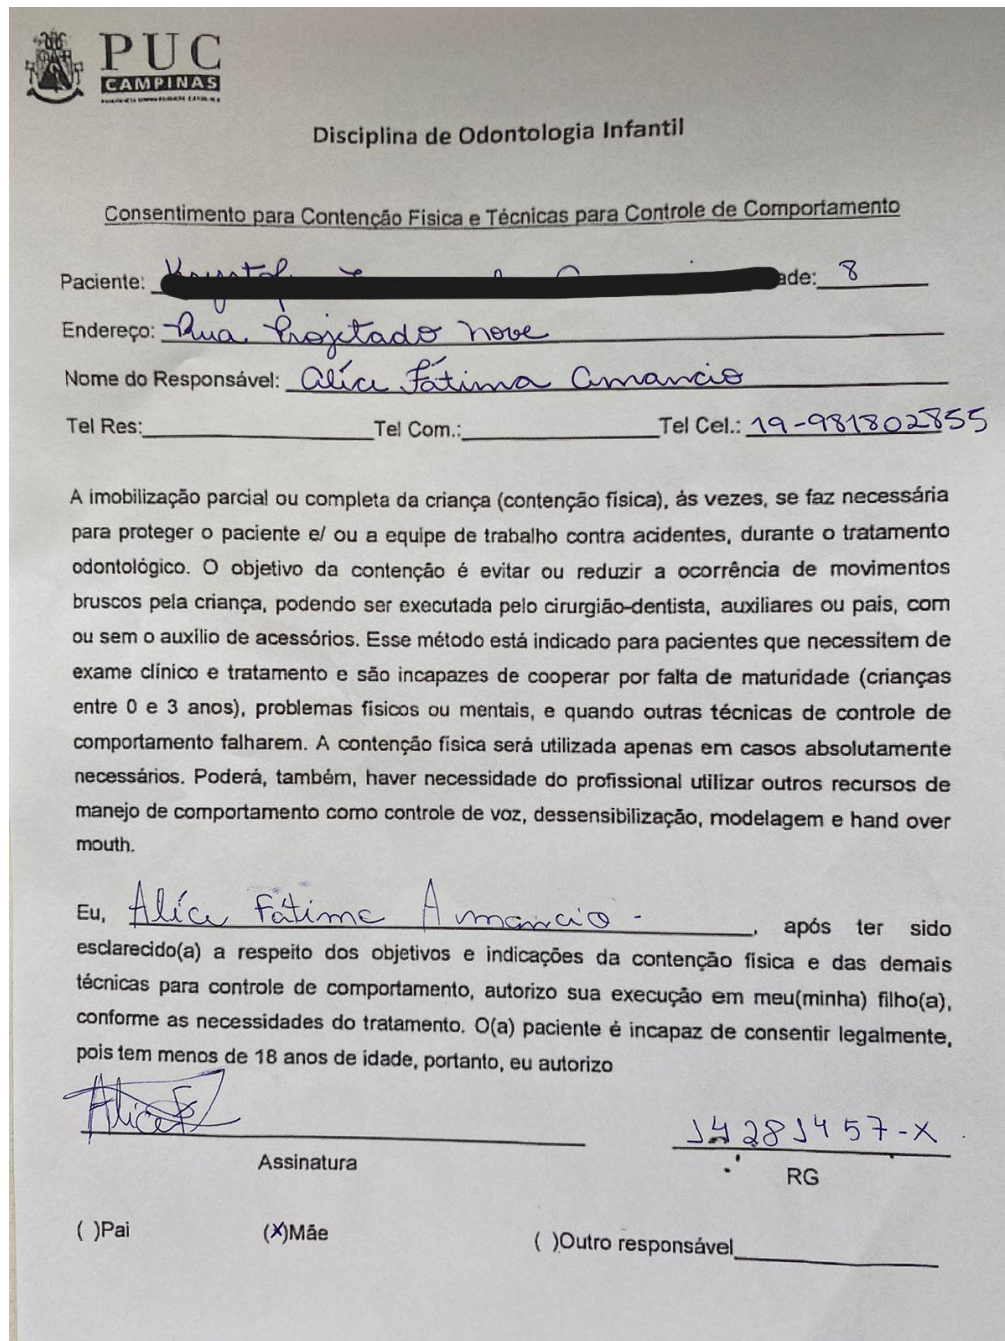 PUC
CAMPINAS
Disciplina de Odontologia Infantil
Consentimento para Contenção Física e Técnicas para Controle de Comportamento
Paciente: ade: 8
Endereço: Rua Projetado nove
Nome do Responsável: Alíce Fátima Amancio
Tel Res: Tel Com.: Tel Cel.: 19-981802855
A imobilização parcial ou completa da criança (contenção física), às vezes, se faz necessária
para proteger o paciente e/ ou a equipe de trabalho contra acidentes, durante o tratamento
odontológico. O objetivo da contenção é evitar ou reduzir a ocorrência de movimentos
bruscos pela criança, podendo ser executada pelo cirurgião-dentista, auxiliares ou pais, com
ou sem o auxílio de acessórios. Esse método está indicado para pacientes que necessitem de
exame clínico e tratamento e são incapazes de cooperar por falta de maturidade (crianças
entre 0 e 3 anos), problemas físicos ou mentais, e quando outras técnicas de controle de
comportamento falharem. A contenção física será utilizada apenas em casos absolutamente
necessários. Poderá, também, haver necessidade do profissional utilizar outros recursos de
manejo de comportamento como controle de voz, dessensibilização, modelagem e hand over
mouth.
Eu, Alíce Fátima Amancio - , após ter sido
esclarecido(a) a respeito dos objetivos e indicações da contenção física e das demais
técnicas para controle de comportamento, autorizo sua execução em meu(minha) filho(a),
conforme as necessidades do tratamento. O(a) paciente é incapaz de consentir legalmente,
pois tem menos de 18 anos de idade, portanto, eu autorizo
Alice 14281457-X
Assinatura RG
( )Pai (X)Mãe ( )Outro responsável